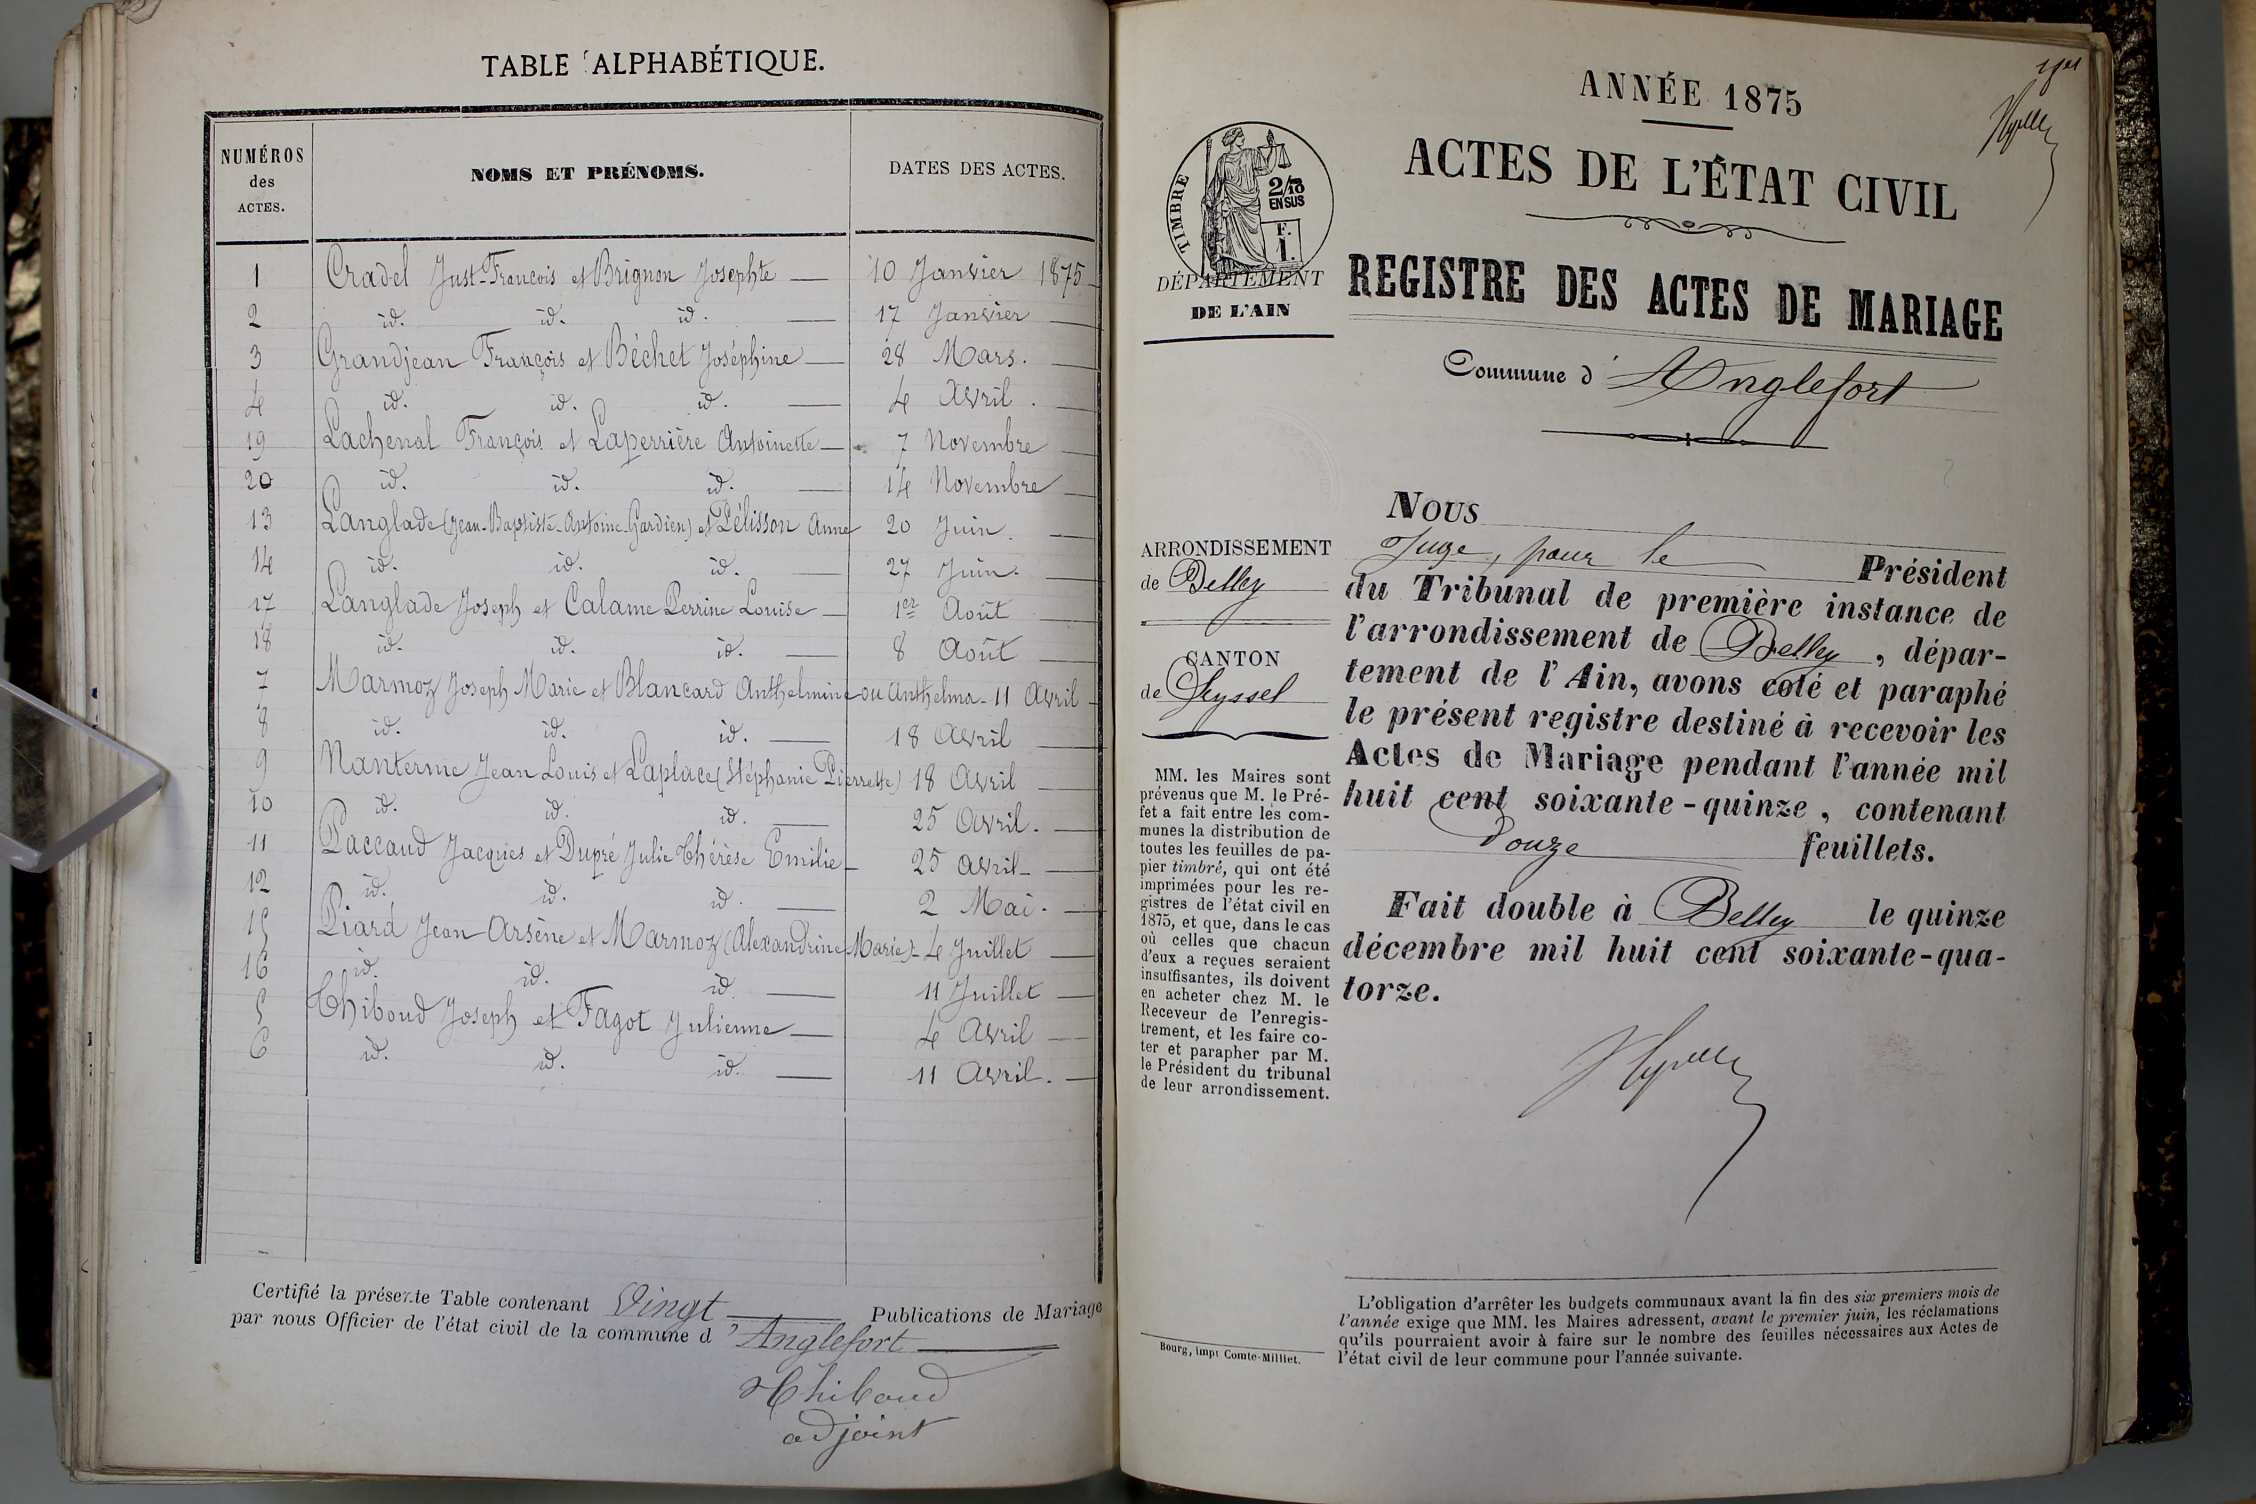 TABLE ALPHABÉTIQUE.
NUMÉROS
des
ACTES.
NOMS ET PRÉNOMS.
DATES DES ACTES.
1 Cradel Just-François et Brignon Josephte — 10 Janvier 1875
2 id. id. id. — 17 Janvier —
3 Grandjean François et Béchet Joséphine — 28 Mars. —
4 id. id. id. — 4 Avril . —
19 Lachenal François et Laperrière Antoinette — 7 Novembre —
20 id. id. id. — 14 Novembre —
13 Langlade (Jean-Baptiste-Antoine-Gardien) et Pélisson Anne 20 Juin. —
14 id. id. id. — 27 Juin. —
17 Langlade Joseph et Calame Perrine Louise — 1er Août —
18 id. id. id. — 8 Août —
7 Marmoz Joseph Marie et Blancard Anthelmine ou Anthelma - 11 Avril -
8 id. id. id. — 18 Avril —
9 Nanterme Jean Louis et Laplace (Stéphanie Pierrette) 18 Avril —
10 id. id. id. — 25 Avril. —
11 Paccaud Jacques et Dupré Julie Thérèse Emilie — 25 Avril —
12 id. id. id. — 2 Mai. —
15 Piard Jean-Arsène et Marmoz (Alexandrine Marie) - 4 Juillet —
16 id. id. id. — 11 Juillet —
5 Thiboud Joseph et Fagot Julienne — 4 Avril —
6 id. id. id. — 11 Avril. —
Certifié la présente Table contenant Vingt — Publications de Mariage
par nous Officier de l'état civil de la commune d'Anglefort —
Thiboud
adjoint
ANNÉE 1875
ACTES DE L'ÉTAT CIVIL
TIMBRE
2/10
EN SUS
F.
1.
DÉPARTEMENT
DE L'AIN
REGISTRE DES ACTES DE MARIAGE
Commune d'Anglefort
ARRONDISSEMENT
de Belley
CANTON
de Seyssel
MM. les Maires sont
prévenus que M. le Pré-
fet a fait entre les com-
munes la distribution de
toutes les feuilles de pa-
pier timbré, qui ont été
imprimées pour les re-
gistres de l'état civil en
1875, et que, dans le cas
où celles que chacun
d'eux a reçues seraient
insuffisantes, ils doivent
en acheter chez M. le
Receveur de l'enregis-
trement, et les faire co-
ter et parapher par M.
le Président du tribunal
de leur arrondissement.
Bourg, impr Comte-Milliet.
Nous
Juge, pour le — Président
du Tribunal de première instance de
l'arrondissement de Belley, dépar-
tement de l'Ain, avons coté et paraphé
le présent registre destiné à recevoir les
Actes de Mariage pendant l'année mil
huit cent soixante-quinze, contenant
Douze feuillets.
Fait double à Belley le quinze
décembre mil huit cent soixante-qua-
torze.
L'obligation d'arrêter les budgets communaux avant la fin des six premiers mois de
l'année exige que MM. les Maires adressent, avant le premier juin, les réclamations
qu'ils pourraient avoir à faire sur le nombre des feuilles nécessaires aux Actes de
l'état civil de leur commune pour l'année suivante.